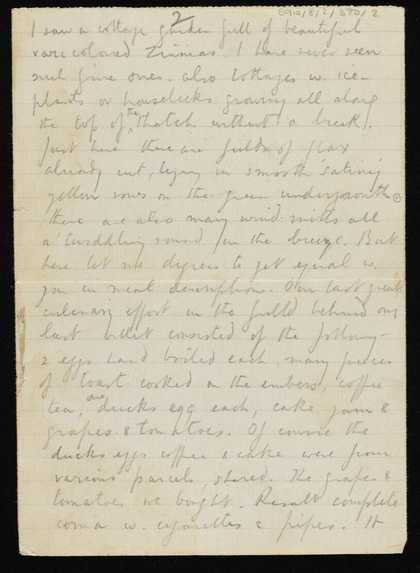 2
I saw a cottage garden full of beautiful
varicoloured Zinnias. I have never seen
such fine ones. also cottages w. ice-
plants or houseleeks growing all along
the top of the thatch without a break!
Just here there are fields of flax
already cut, lying in smooth satiny
yellow rows on the green undergrowth
there are also many wind mills all
a twiddling round in the breeze. But
here let me digress to get equal w.
you in meal descriptions. Our last great
culinary effort in the field behind our
last billet consisted of the following -
2 eggs hard boiled each, many pieces
of toast cooked on the embers, coffee
tea, one ducks egg each, cake jam &
grapes & tomatoes. Of course the
ducks eggs coffee & cake were from
various parcels, shared. The grapes &
tomatoes we bought. Result complete
coma w. cigarettes & pipes. It